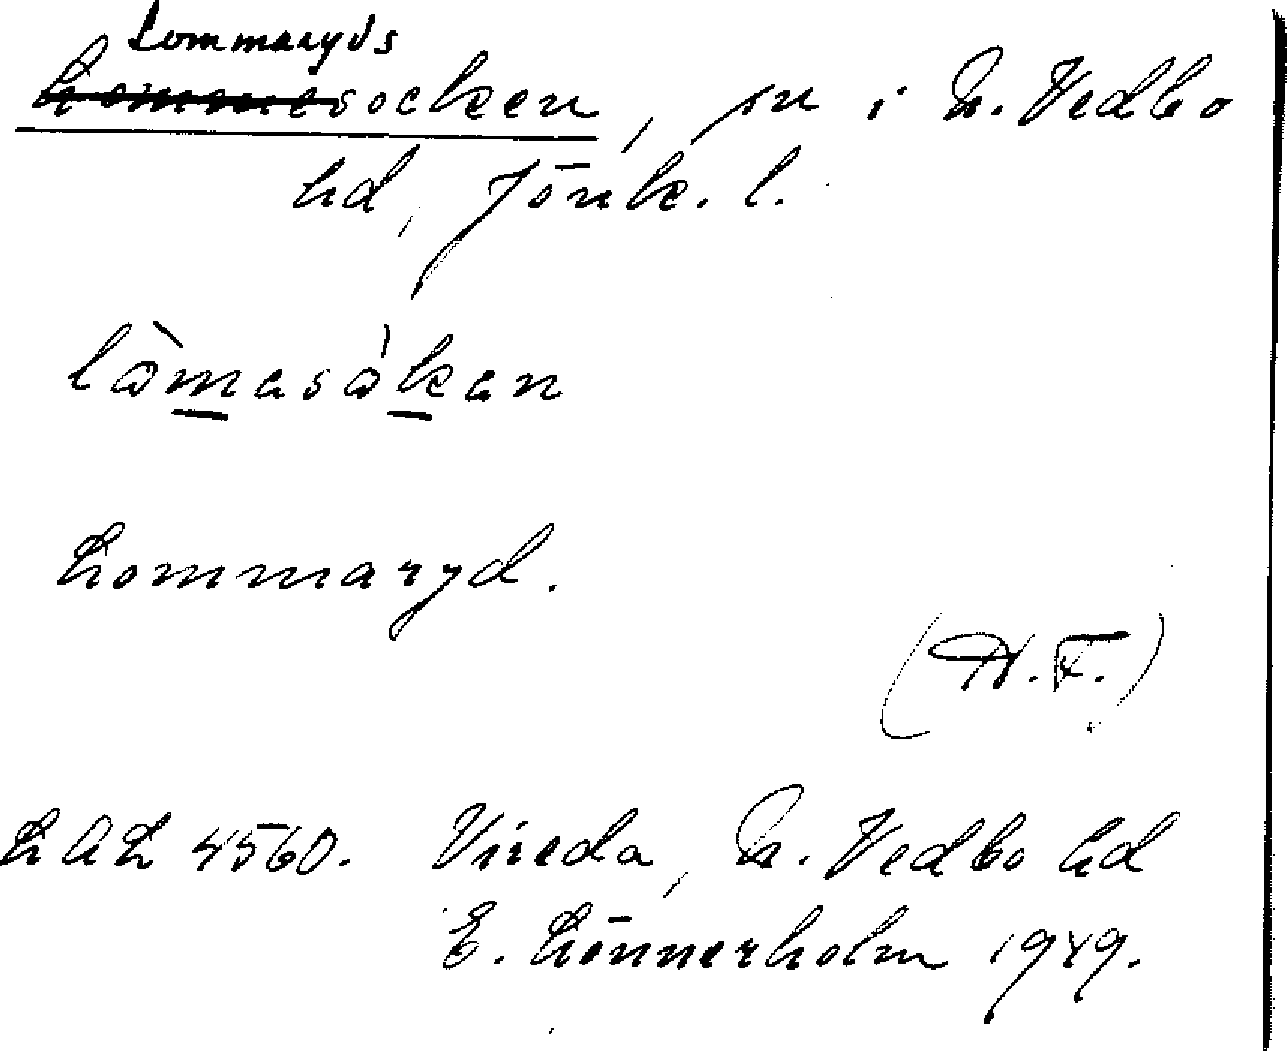 Lommaryds
Lommesocken, sn i N. Vedbo
hd, Jönk. l.
lò̱masò̱kan
Lommaryd.
(H.F.)
LAL 4560. Vireda, N. Vedbo hd
E. Lönnerholm 1949.